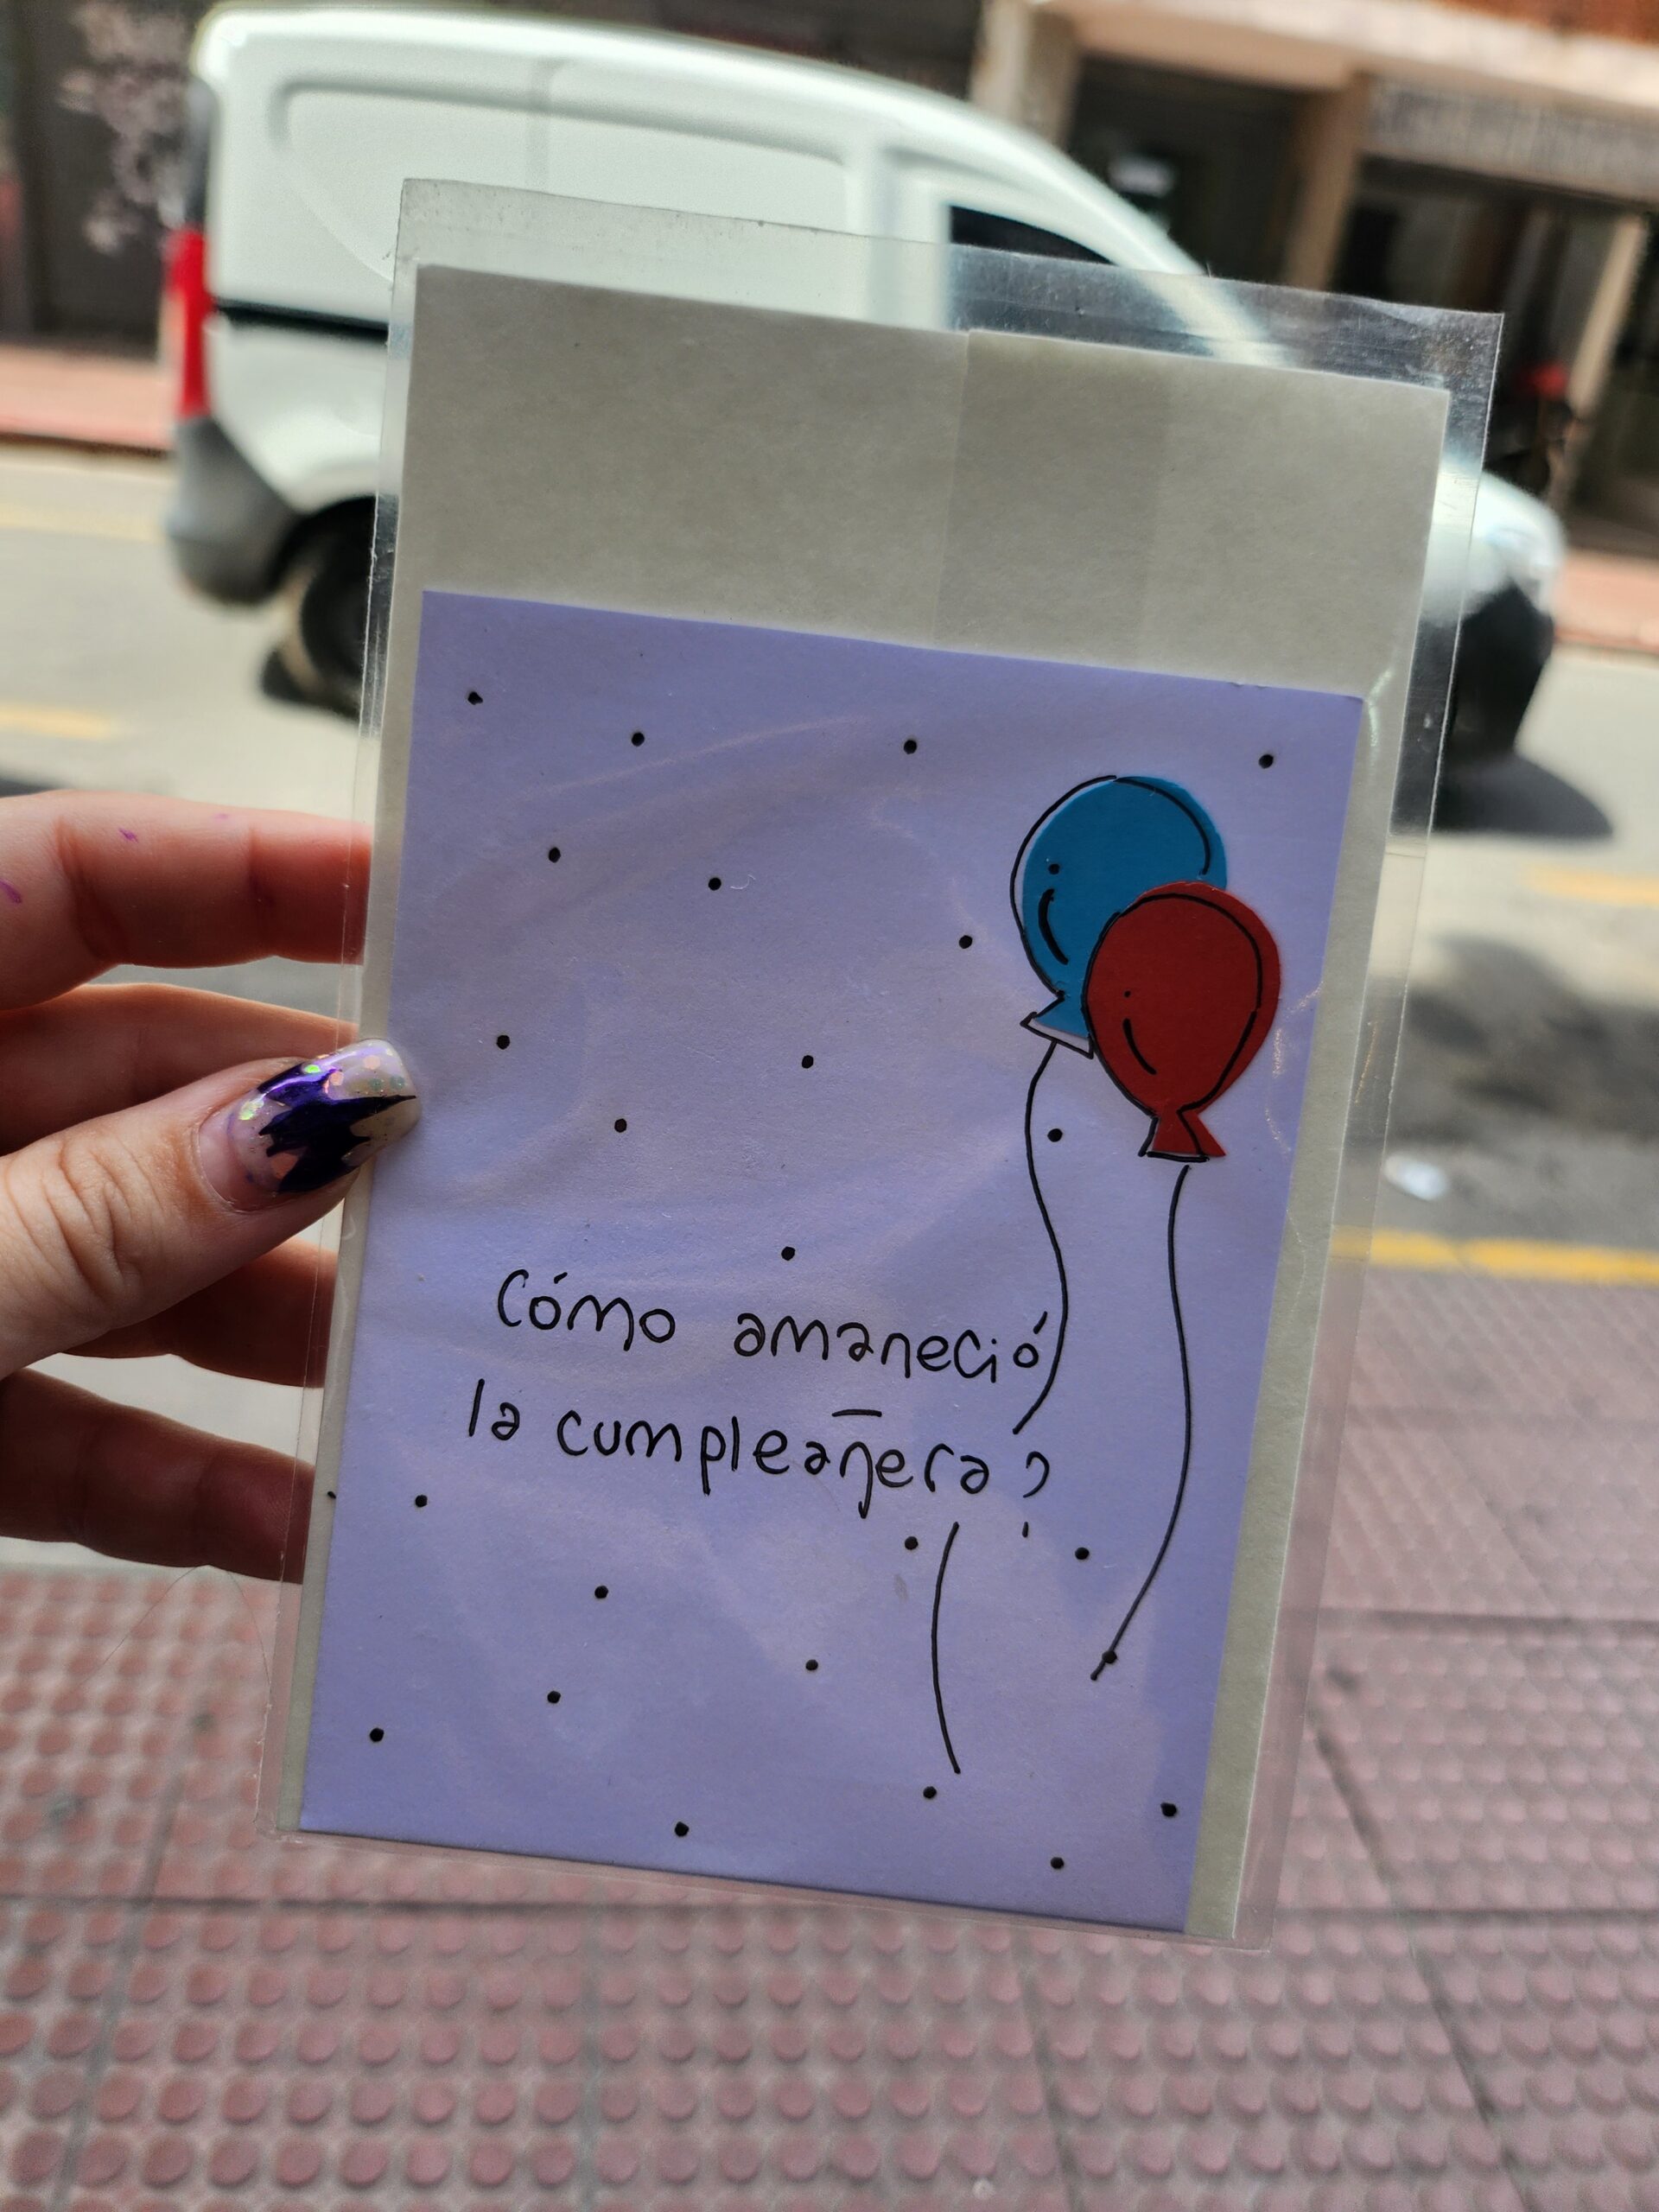 Cómo amaneció
la cumpleañera?